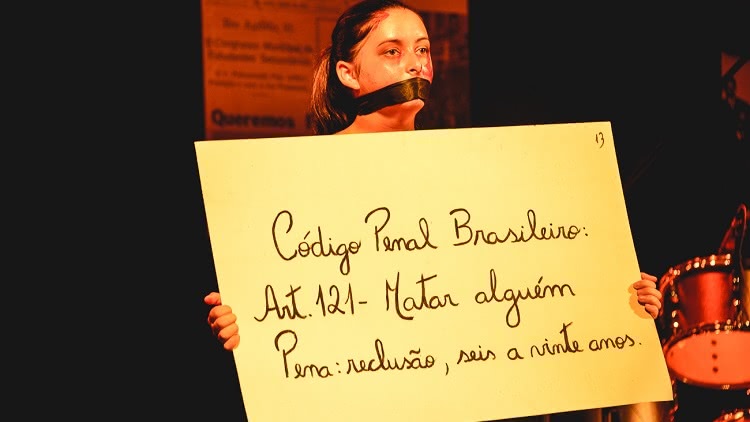 Queremos
13
Código Penal Brasileiro:
Art. 121 - Matar alguém
Pena: reclusão, seis a vinte anos.